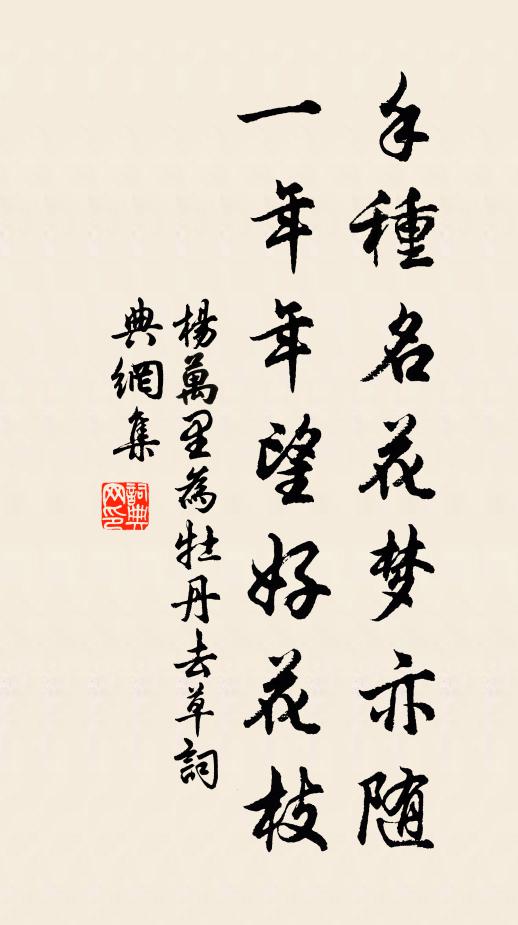 手種名花梦亦随
一年年望好花枝
楊萬里為牡丹去草詞
典網集
詞典
网印